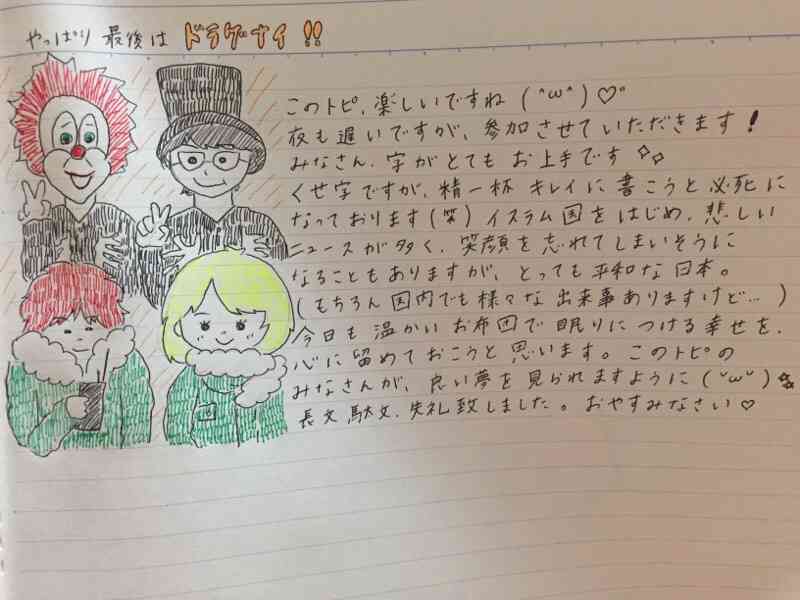 やっぱり 最後は ドラゲナイ!!
このトピ、楽しいですね (^ω^)♡
夜も遅いですが、参加させていただきます!
みなさん、字がとても お上手です
くせ字ですが、精一杯 キレイに 書こうと必死に
なっております(笑) イスラム国をはじめ、悲しい
ニュースが多く、笑顔を忘れてしまいそうに
なることもありますが、とっても平和な日本。
(もちろん国内でも様々な出来事ありますけど… )
今日も温かいお布団で眠りにつける幸せを、
心に留めておこうと思います。このトピの
みなさんが、良い夢を見られますように(˘ω˘)
長文 駄文、失礼致しました。おやすみなさい♡